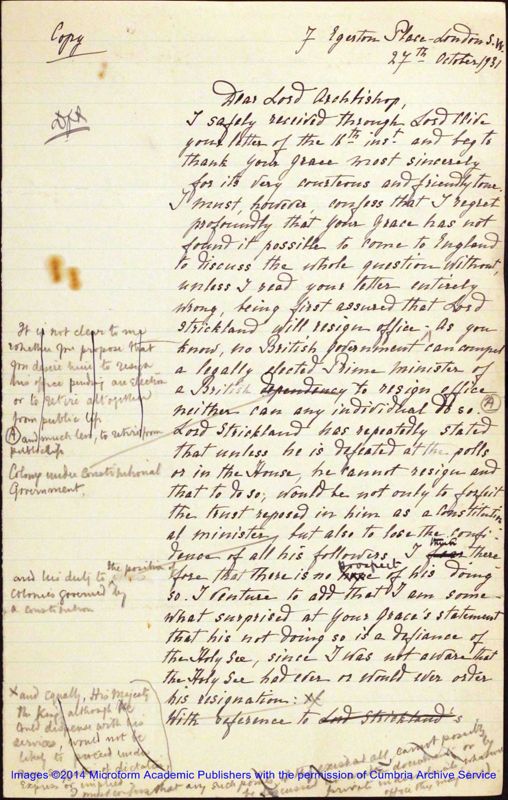 Copy
7 Egerton Place - London S.W.
27th October 1931
Dear Lord Archbishop,
I safely received through Lord Clive
your letter of the 18th inst. and beg to
thank Your Grace most sincerely
for its very courteous and friendly tone.
I must, however, confess that I regret
profoundly that Your Grace has not
found it possible to come to England
to discuss the whole question without,
unless I read your letter entirely
wrong, being first assured that Lord
Strickland will resign office. As you
know, no British Government can compel
a legally elected Prime Minister of
a British dependency to resign office
neither can any individual do so. (A)
Lord Strickland has repeatedly stated
that unless he is defeated at the polls
or in the House, he cannot resign and
that to do so, would be not only to forfeit
the trust reposed in him as a Constitution
al minister but also to lose the confi-
dence of all his followers. I fear think there
fore that there is no hope prospect of his doing
so. I venture to add that I am some-
what surprised at Your Grace's statement
that his not doing so is a defiance of
the Holy See, since I was not aware that
the Holy See had ever or would ever order
his resignation: X
With reference to Lord Strickland's
It is not clear to me
whether you propose that
you desire him to resign
his office pending an election
or to retire altogether
from public life
(A) and much less, to retire from
public life
Colony under Constitutional
Government.
and his duty to the position of
Colonies governed by
a constitution
X and equally, His Majesty
the King, although he
could dispense with his
services, would not be
likely to
express or implied.
I must confess that any such
Images ©2014 Microform Academic Publishers with the permission of Cumbria Archive Service